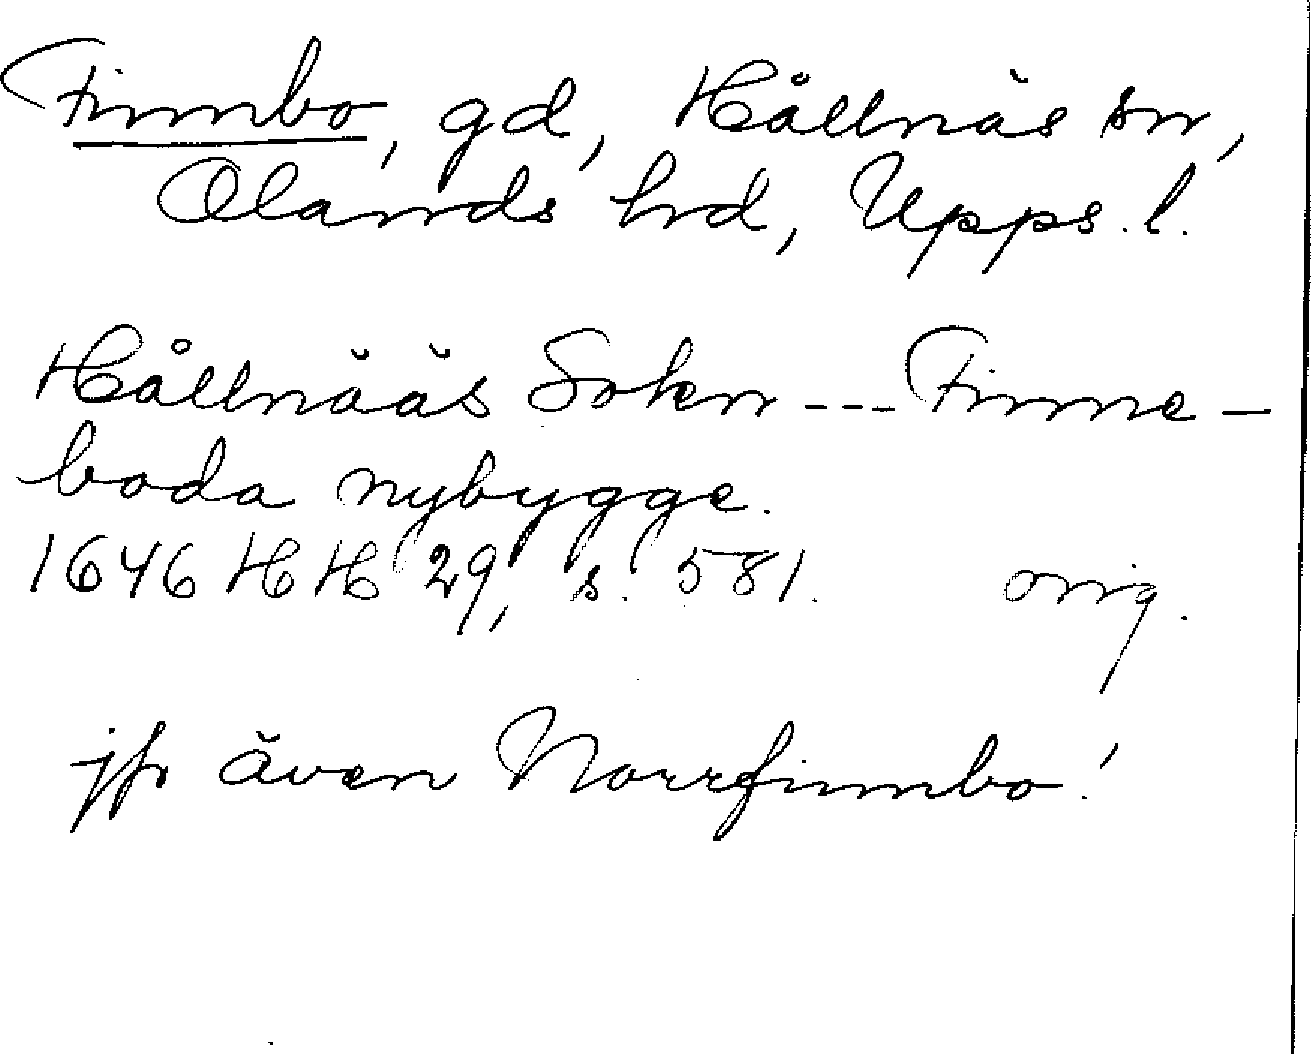 Finnbo, gd, Hållnäs sn,
Olands hd, Upps. l.
Hållnääs Sokn --- Finne-
boda nybygge.
1646 HH 29, s. 581. orig.
jfr även Norrfinnbo!